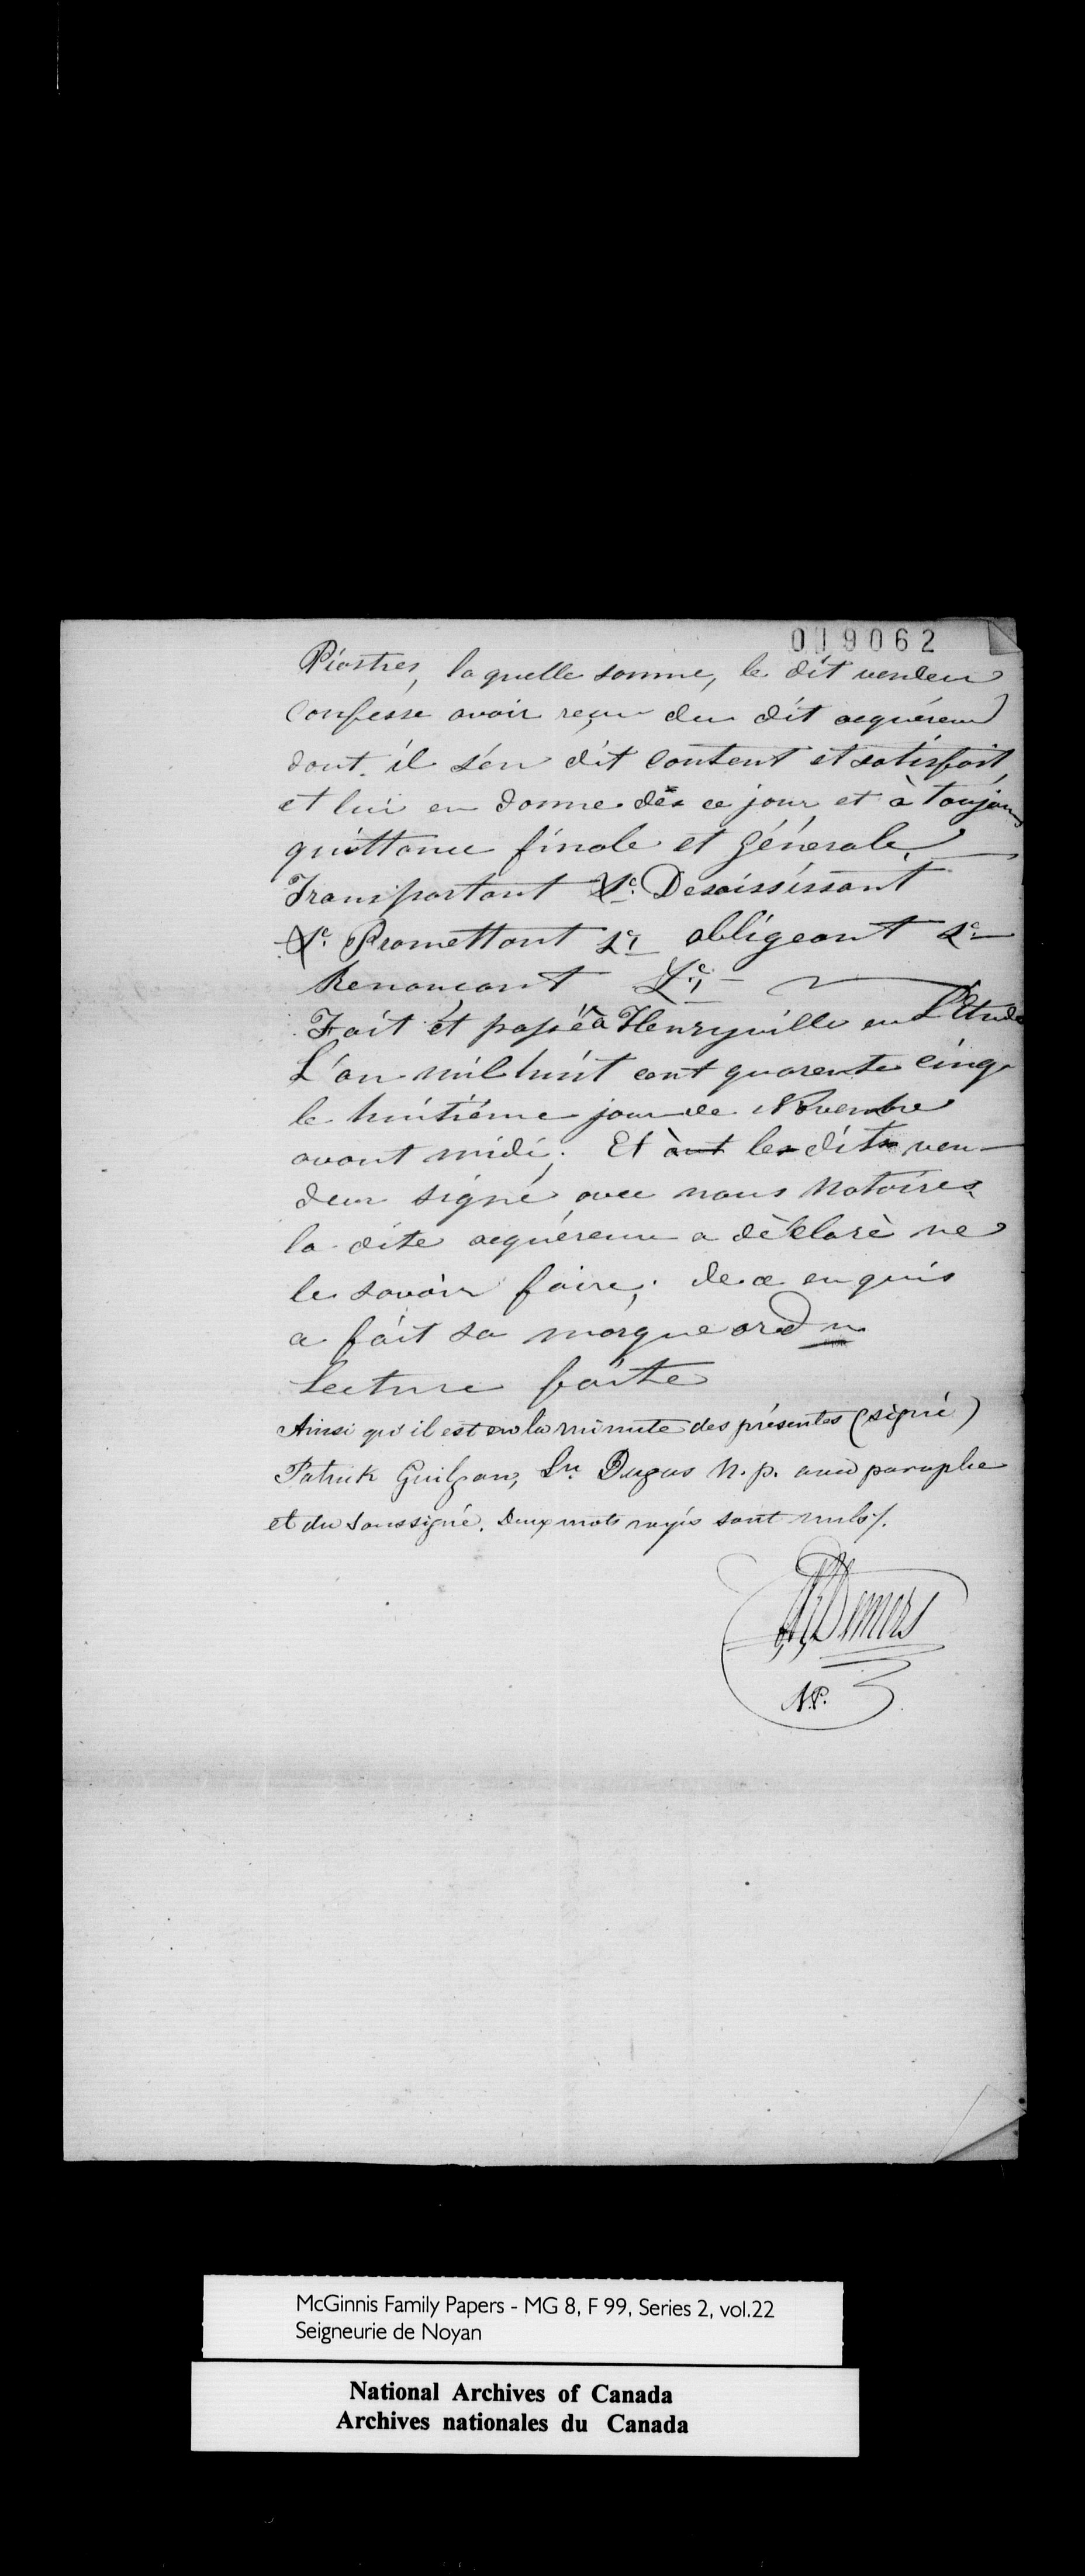 019062
Piastres, laquelle somme, le dit vendeur
Confesse avoir reçu du dit acquéreur
dont il s'en dit Content et satisfait,
et lui en donne dès ce jour et à toujours
quittance finale et générale,
Transportant &c. Desaisissant
&c. Promettant &c obligeant &c
Renonçant &c
Fait et passé à Henryville en L'Etude
L'an mil huit cent quarente cinq
le huitième jour de Novembre
avant midi; Et ànt le dit ven-
deur signé avec nous Notaires
la dite acquéreur a dèclaré ne
le savoir faire; de ce enquis
a fait sa marque ord
Lecture faite
Ainsi qu'il est en la minute des présentes (signé)
Patrick Guilgan, Ln. Dugas N.p. avec paraphe
et du soussigné. Deux mots rayés sont nuls/.
Demers
N.P.
McGinnis Family Papers - MG 8, F 99, Series 2, vol.22
Seigneurie de Noyan
National Archives of Canada
Archives nationales du Canada